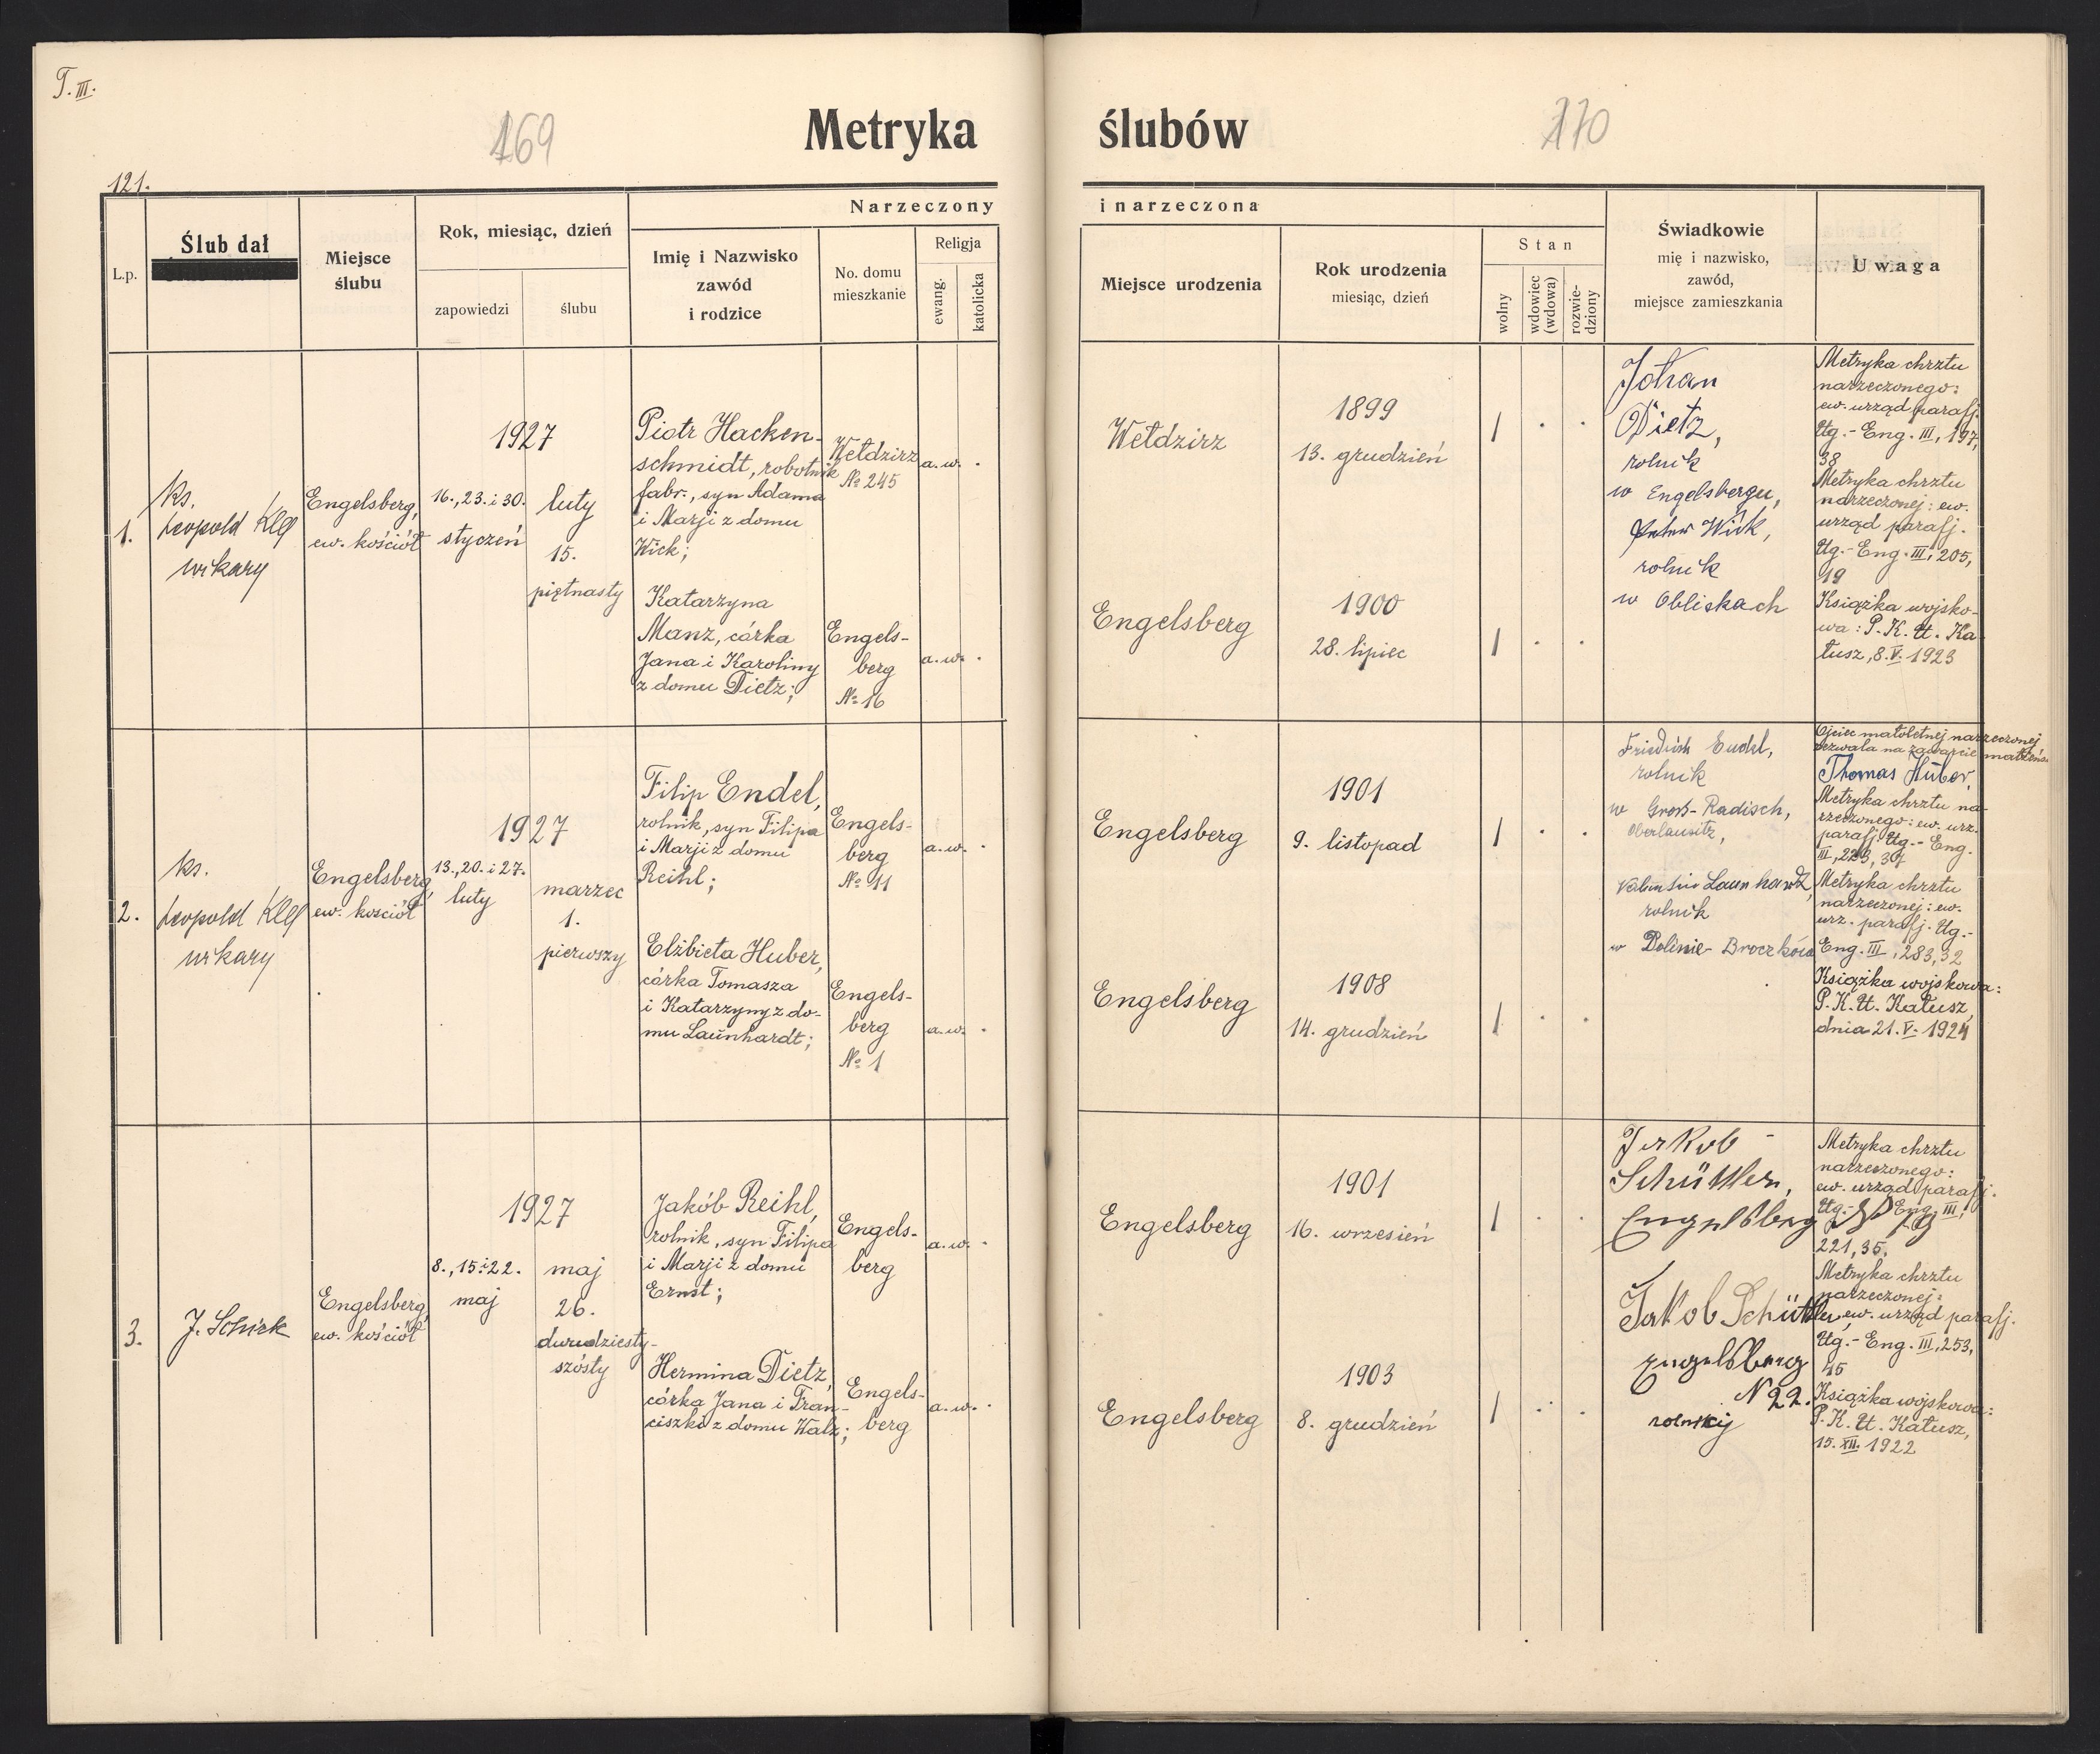 T. III.
169
Metryka ślubów
170
121.
Narzeczony i narzeczona
L.p.
Ślub dał
Miejsce
ślubu
Rok, miesiąc, dzień
zapowiedzi
ślubu
Imię i Nazwisko
zawód
i rodzice
No. domu
mieszkanie
Religja
ewang.
katolicka
Miejsce urodzenia
Rok urodzenia
miesiąc, dzień
Stan
wolny
wdowiec
(wdowa)
rozwie-
dziony
Świadkowie
mię i nazwisko,
zawód,
miejsce zamieszkania
Uwaga
1.
ks.
Leopold Klee
wikary
Engelsberg,
ew. kościół
1927
16., 23. i 30.
styczeń
luty
15.
piętnasty
Piotr Hacken-
schmidt, robotnik
fabr., syn Adama
i Marji z domu
Wick;
Wełdzirz
№ 245
a. w. .
Wełdzirz
1899
13. grudzień
1 . .
Katarzyna
Manz, córka
Jana i Karoliny
z domu Dietz;
Engels-
berg
№ 16
a. w. .
Engelsberg
1900
28. lipiec
1 . .
Johan
Dietz,
rolnik
w Engelsbergu,
Wick,
rolnik
w Obliskach
Metryka chrztu
narzeczonego:
ew. urząd parafj.
Ug.- Eng. III, 197,
38
Metryka chrztu
narzeczonej: ew.
urząd parafj.
Ug.- Eng. III, 205,
19
Książka wojsko-
wa: P. K. U. Ka-
łusz, 8. V. 1923
2.
ks.
Leopold Klee
wikary
Engelsberg,
ew. kościół
1927
13., 20. i 27.
luty
marzec
1.
pierwszy
Filip Endel,
rolnik, syn Filipa
i Marji z domu
Reihl;
Engels-
berg
№ 11
a. w. .
Engelsberg
1901
9. listopad
1 . .
Elżbieta Huber,
córka Tomasza
i Katarzyny z do-
mu Launhardt;
Engels-
berg
№ 1
a. w. .
Engelsberg
1908
14. grudzień
1 . .
Friedrich Endel,
rolnik
w Groß-Radisch,
Oberlausitz,
Valentin Launhardt,
rolnik
w Dolinie- Broczków
Ojciec małoletniej narzeczonej
zezwala na zawarcie małżeńs.
Thomas Huber.
Metryka chrztu na-
rzeczonego: ew. urz.
parafj. Ug.- Eng.
III, 223, 37
Metryka chrztu
narzeczonej: ew.
urz. parafj. Ug.-
Eng. III, 283, 32
Książka wojskowa:
P. K. U. Kałusz,
dnia 21. V. 1924
3.
J. Schick
Engelsberg,
ew. kościół
1927
8., 15. i 22.
maj
maj
26.
dwudziesty-
szósty
Jakób Reihl,
rolnik, syn Filipa
i Marji z domu
Ernst;
Engels-
berg
a. w. .
Engelsberg
1901
16. wrzesień
1 . .
Hermina Dietz,
córka Jana i Fran-
ciszki z domu Walz;
Engels-
berg
a. w. .
Engelsberg
1903
8. grudzień
1 . .
Jakob
Schüttler,
Engelsberg
Jakob Schüttler,
Engelsberg
N 22.
rolnicy
Metryka chrztu
narzeczonego:
ew. urząd parafj.
Ug.- Eng. III,
221, 35.
Metryka chrztu
narzeczonej:
ew. urząd parafj.
Ug.- Eng. III, 253,
45
Książka wojskowa:
P. K. U. Kałusz,
15. XII. 1922